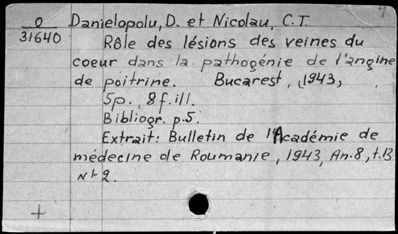 O Danielopolu, D. et Nicolau, C.T.
31640 Rôle des lésions des veines du
coeur dans la pathogénie de l'angine
de poitrine. Bucarest, 1943,
5p., 8f.ill.
Bibliogr. p.5.
Extrait: Bulletin de l'Académie de
médecine de Roumanie, 1943, An.8, t.
Nr 2.